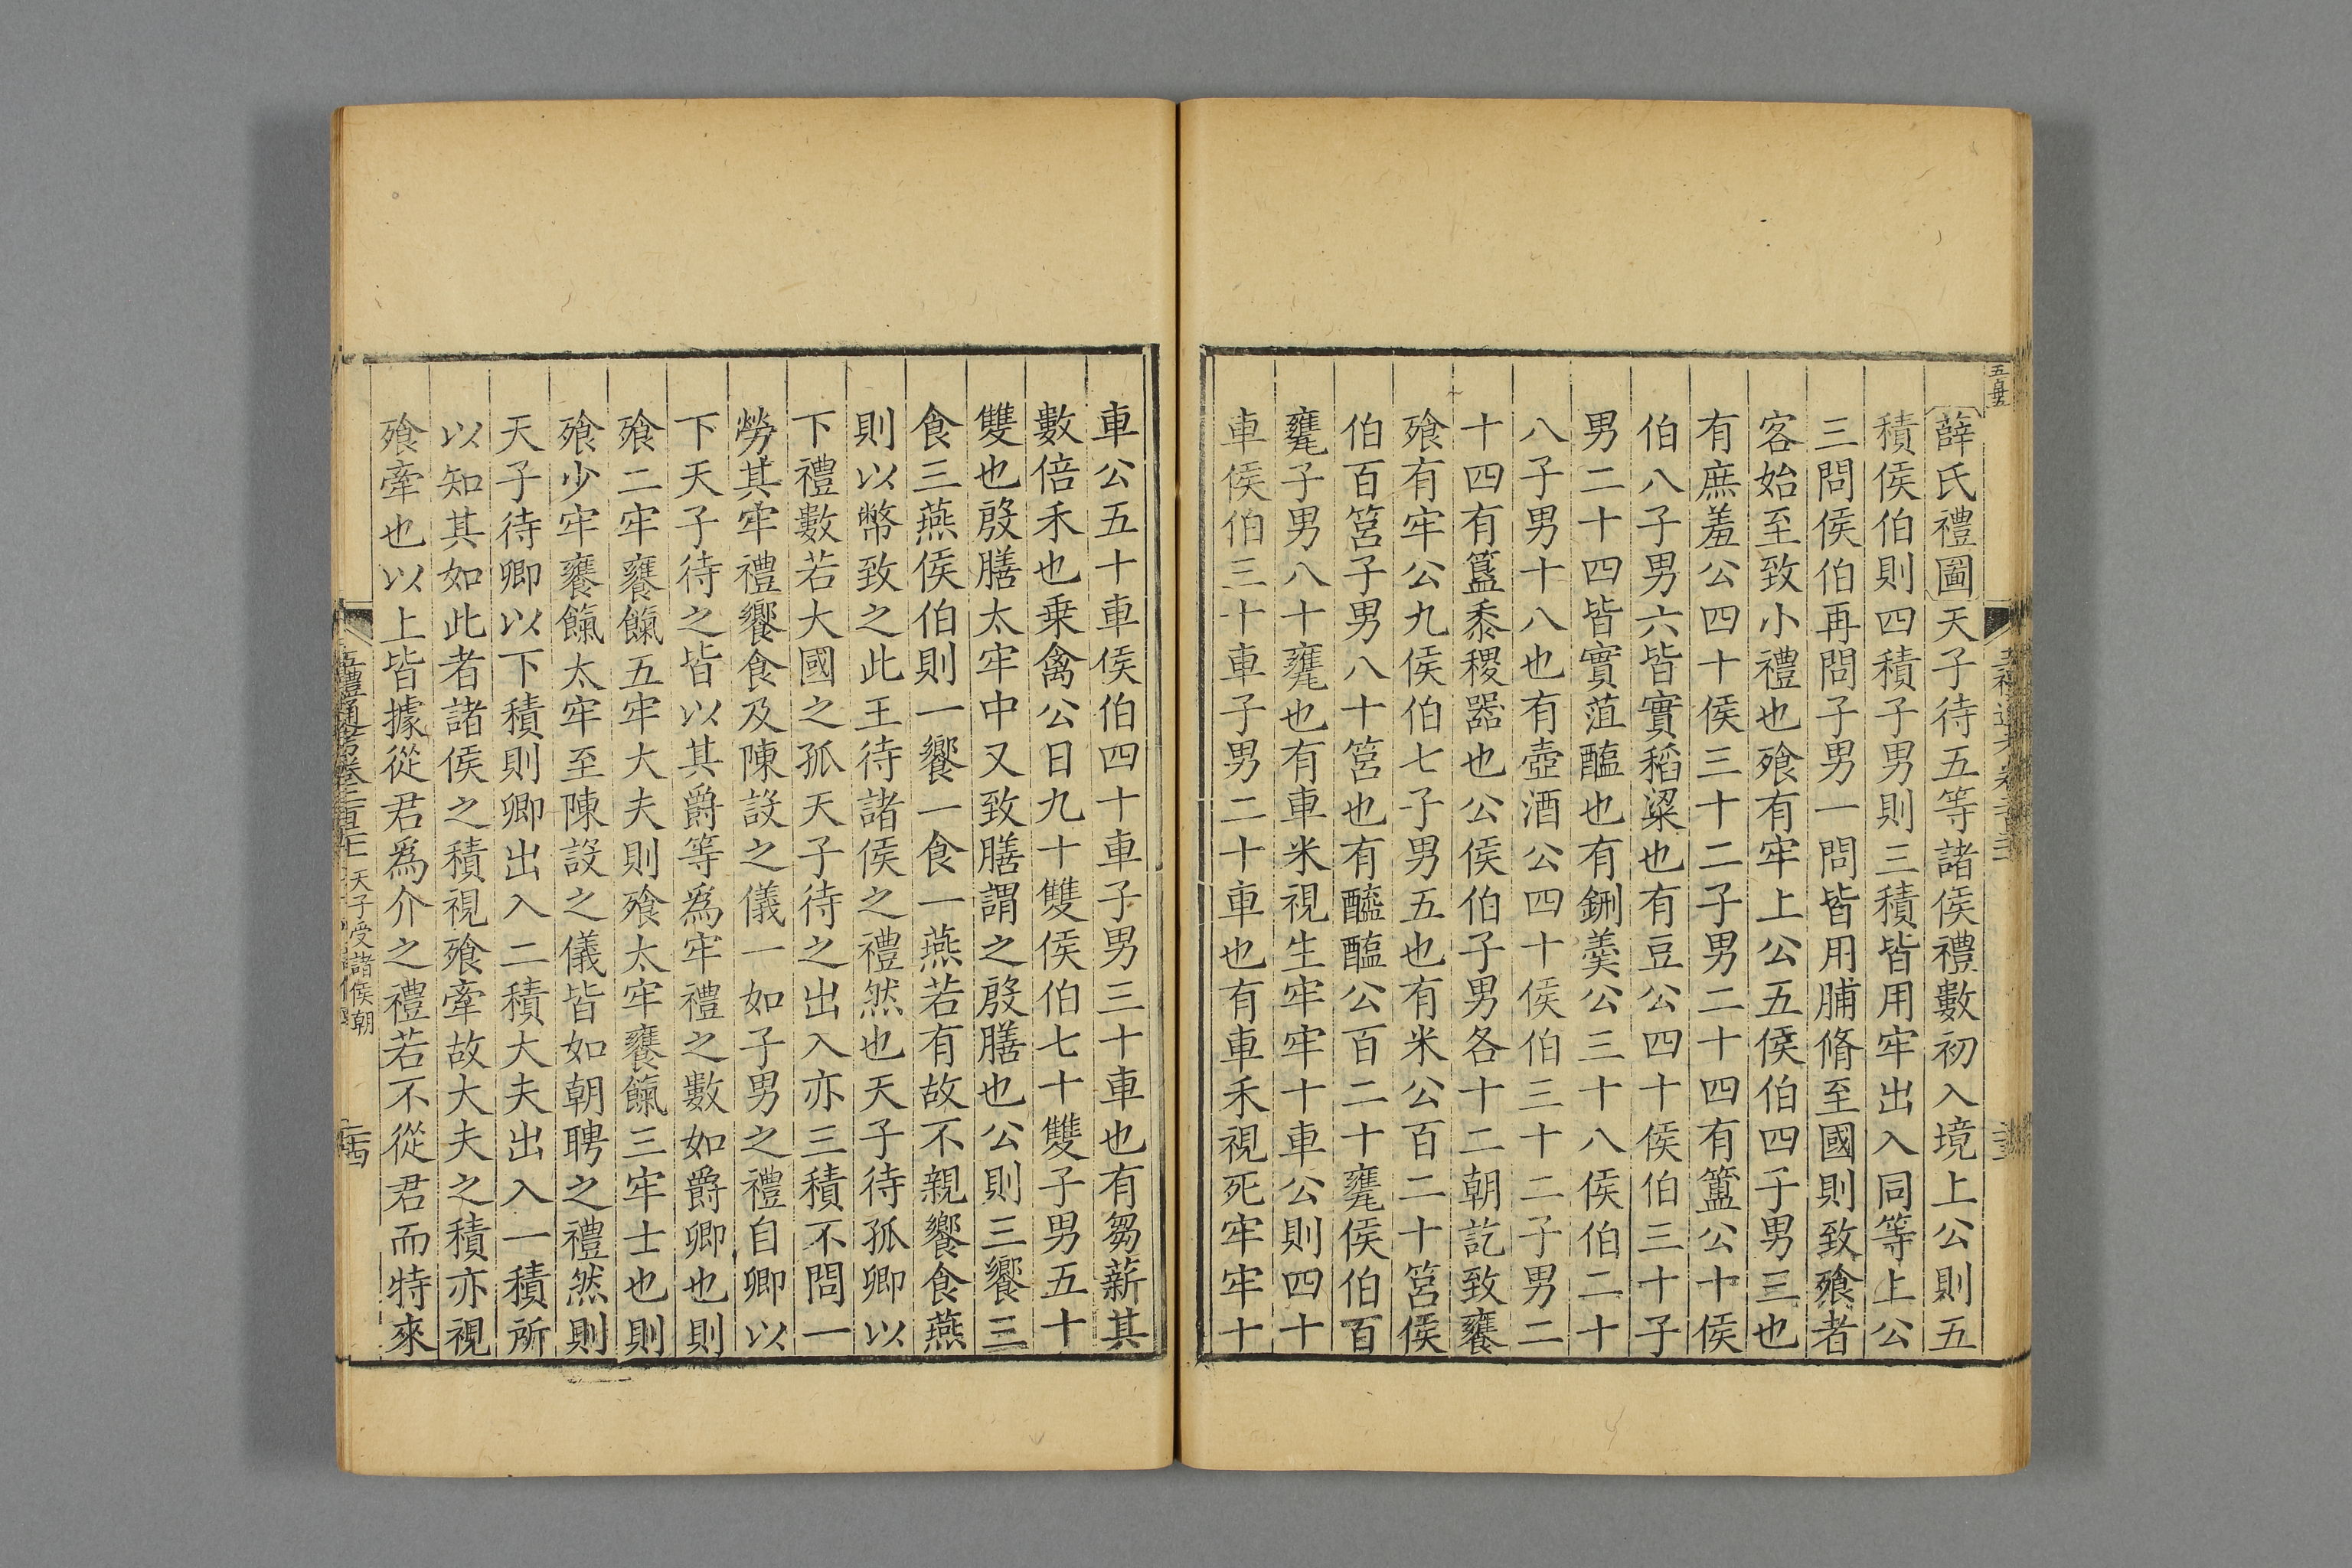 薛氏禮圖天子待五等諸侯禮數初入境上公則五
積侯伯則四積子男則三積皆用牢出入同等上公
三問侯伯再問子男一問皆用脯脩至國則致飱者
客始至致小禮也飱有牢上公五侯伯四子男三也
有庶羞公四十侯三十二子男二十四有簠公十侯
伯八子男六皆實稻粱也有豆公四十侯伯三十子
男二十四皆實菹醢也有鉶羹公三十八侯伯二十
八子男十八也有壺酒公四十侯伯三十二子男二
十四有簋黍稷器也公侯伯子男各十二朝訖致饔
飱有牢公九侯伯七子男五也有米公百二十筥侯
伯百筥子男八十筥也有醯醢公百二十罋侯伯百
罋子男八十罋也有車米視生牢牢十車公則四十
車侯伯三十車子男二十車也有車禾視死牢牢十
車公五十車侯伯四十車子男三十車也有芻薪其
數倍禾也乗禽公日九十雙侯伯七十雙子男五十
雙也殷膳太牢中又致膳謂之殷膳也公則三饗三
食三燕侯伯則一饗一食一燕若有故不親饗食燕
則以幣致之此王待諸侯之禮然也天子待孤卿以
下禮數若大國之孤天子待之出入亦三積不問一
勞其牢禮饗食及陳設之儀一如子男之禮自卿以
下天子待之皆以其爵等爲牢禮之數如爵卿也則
飱二牢饔餼五牢大夫則飱太牢饔餼三牢士也則
飱少牢饔餼太牢至陳設之儀皆如朝聘之禮然則
天子待卿以下積則卿出入二積大夫出入一積所
以知其如此者諸侯之積視飱牽故大夫之積亦視
飱牽也以上皆據從君爲介之禮若不從君而特來
五禮通考卷二百二十 天子受諸侯朝